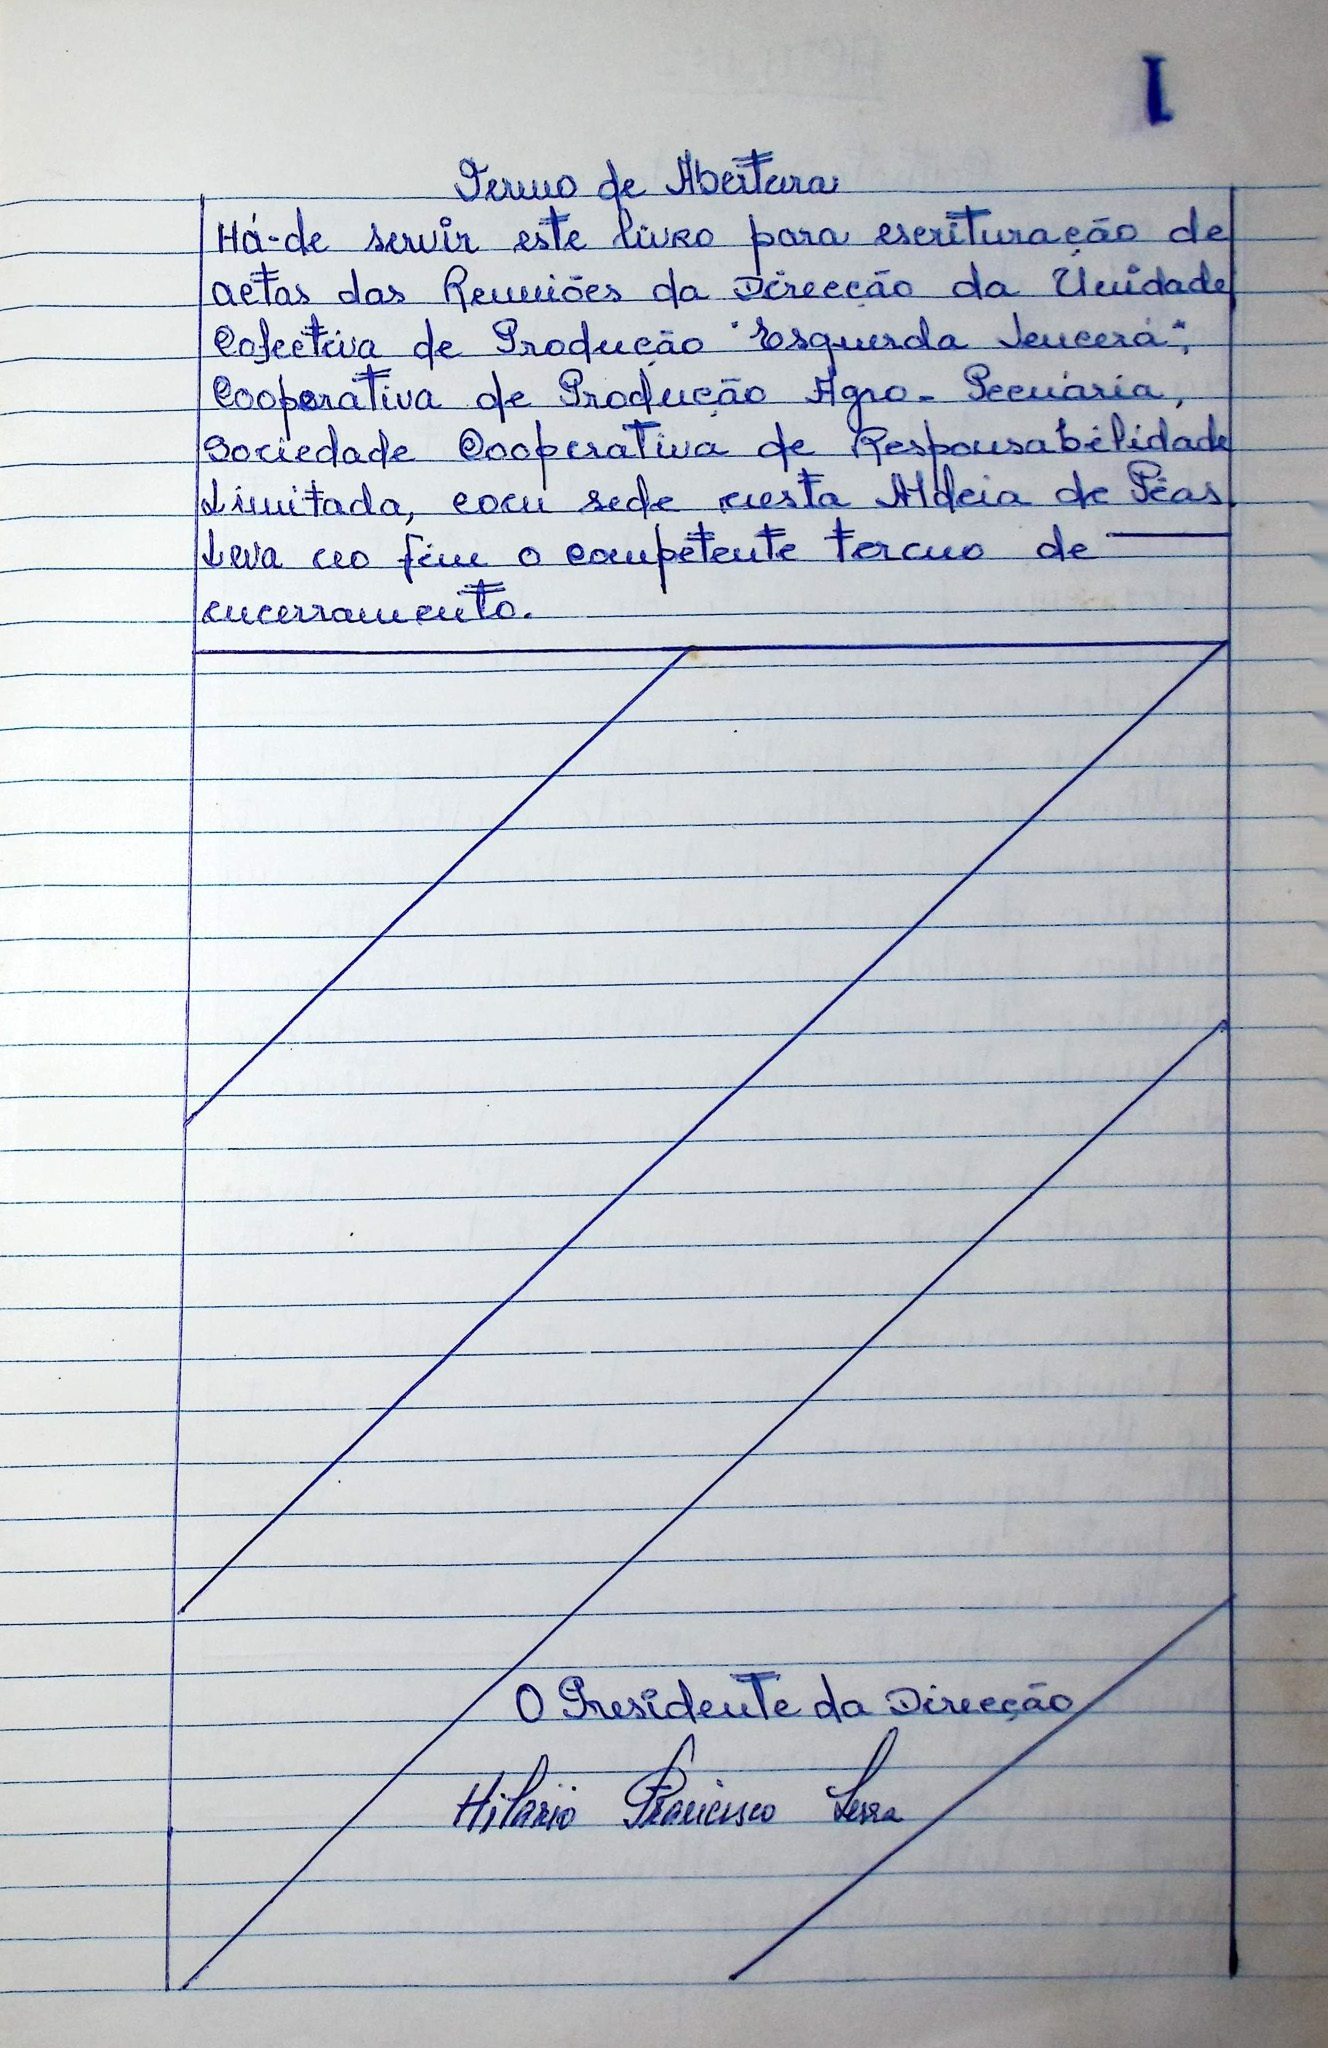 1
Termo de Abertura
Há-de servir este livro para escrituração de
actas das Reuniões da Direcção da Unidade
Colectiva de Produção "Esquerda Vencerá",
Cooperativa de Produção Agro-Pecuária,
Sociedade Cooperativa de Responsabilidade
Limitada, com sede nesta Aldeia de Pias.
Leva no fim o competente termo de
encerramento.
O Presidente da Direcção
Hilário Francisco Serra